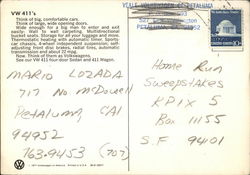 VW 411's
Think of big, comfortable cars.
Think of large, wide opening doors.
Wide enough for a big man to enter and exit
easily. Wall to wall carpeting. Multidirectional
bucket seats. Storage for all your luggage and more.
Thermostatic heating with automatic timer. Sporty
chassis, 4-wheel independent suspension, self-
adjusting front disc brakes, radial tires. Automatic
transmission and about 22 mpg.
Now. Think of them as Volkswagens.
See our VW 411 four door Sedan and 411 Wagon.
MARIO LOZADA
717 No McDowell
Petaluma, CAl
94952
763-9453 (707)
Home Run
Sweepstakes
KPIX 5
Box 11155
S.F. 94101